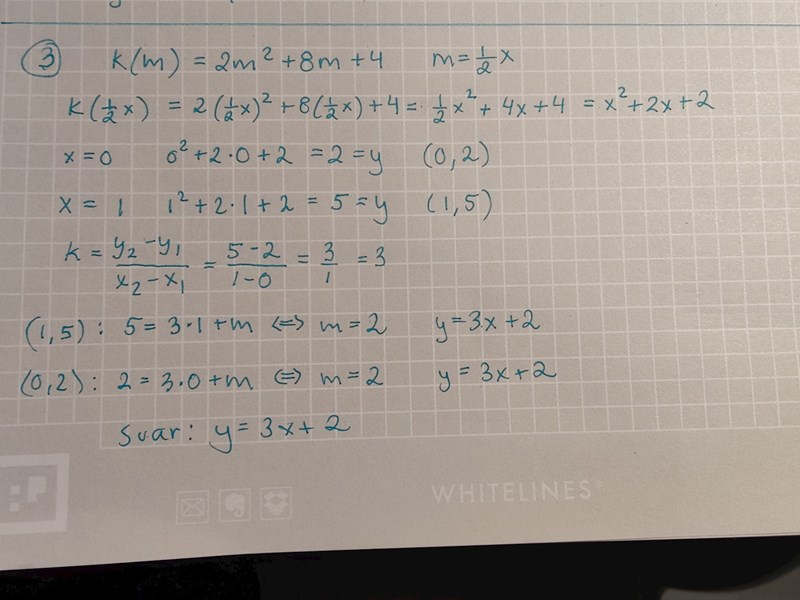 ③ k(m) = 2m² + 8m + 4 m = 1/2 x
k(1/2 x) = 2(1/2 x)² + 8(1/2 x) + 4 = 1/2 x² + 4x + 4 = x² + 2x + 2
x = 0 0² + 2·0 + 2 = 2 = y (0,2)
x = 1 1² + 2·1 + 2 = 5 = y (1,5)
k = (y₂ - y₁)/(x₂ - x₁) = (5 - 2)/(1 - 0) = 3/1 = 3
(1,5): 5 = 3·1 + m ⟺ m = 2 y = 3x + 2
(0,2): 2 = 3·0 + m ⟺ m = 2 y = 3x + 2
Svar: y = 3x + 2
WHITELINES®